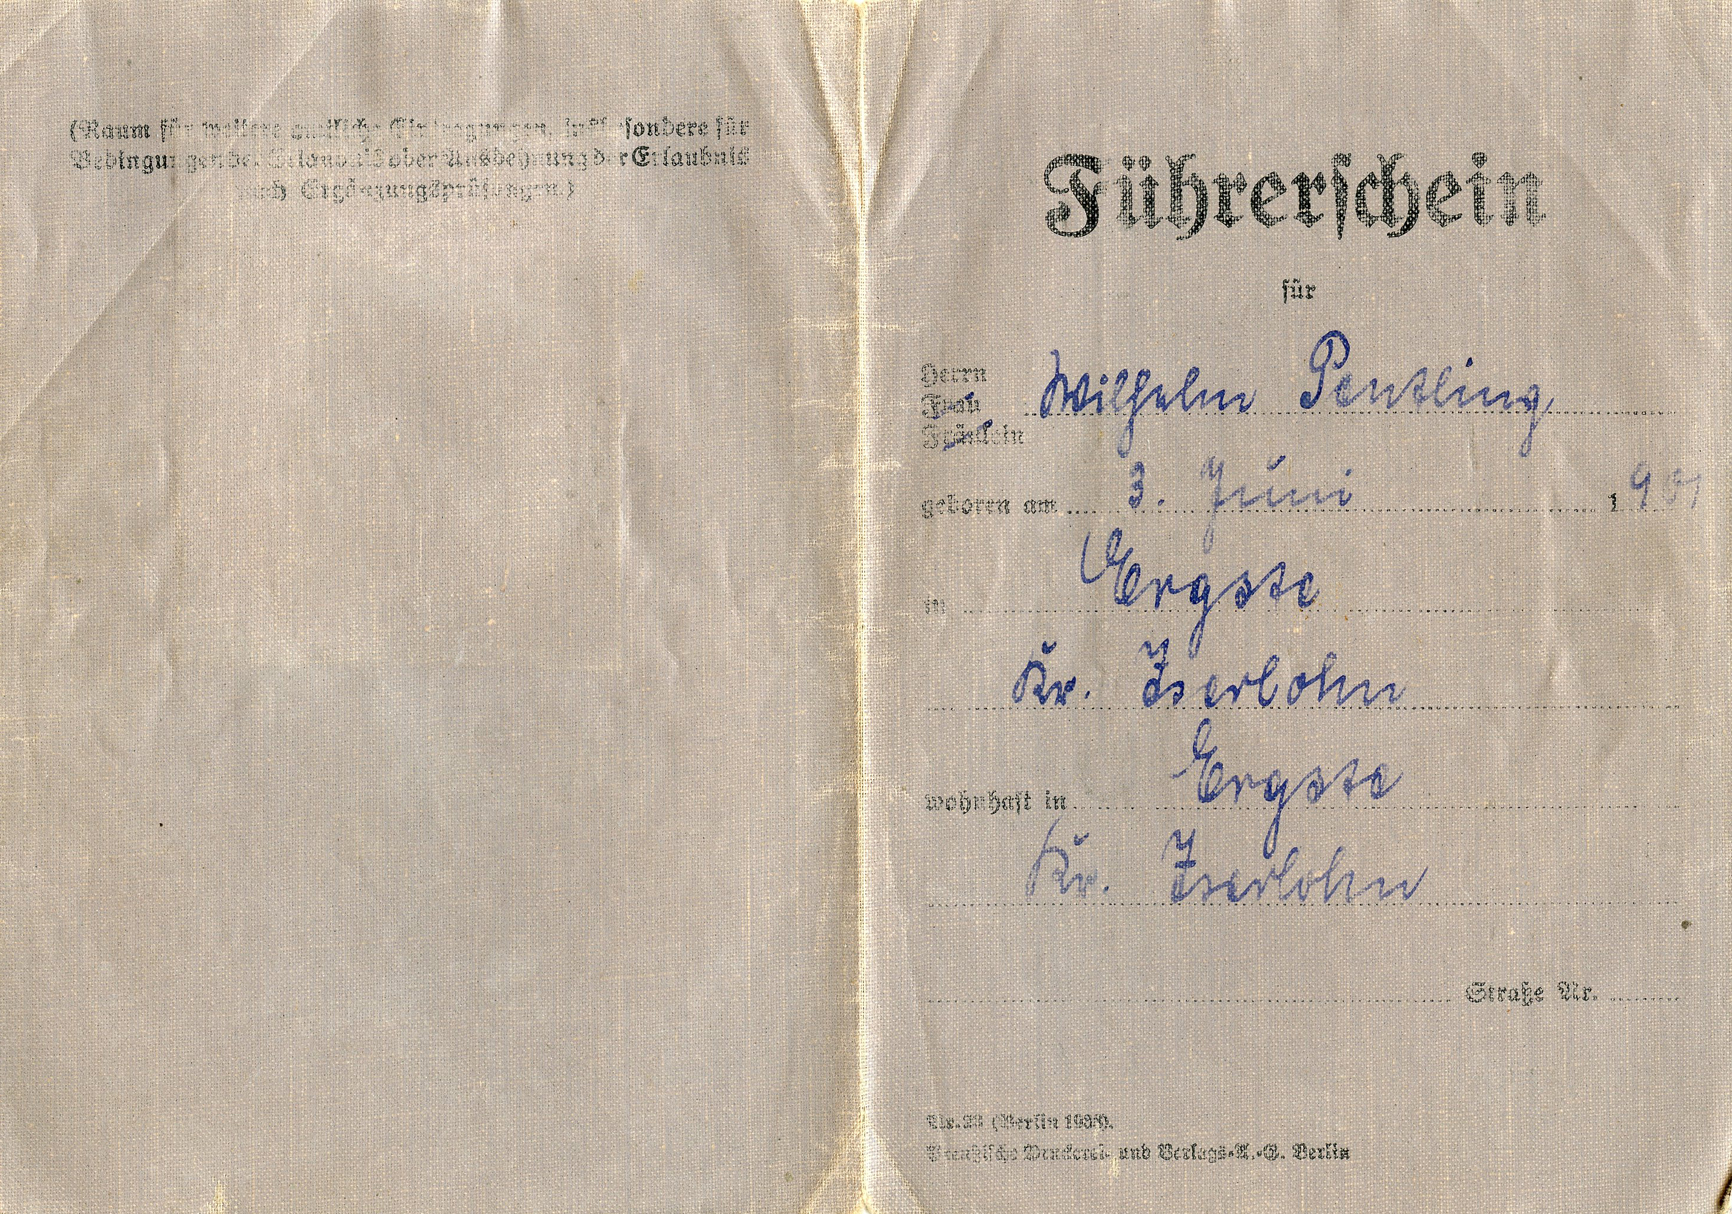 (Raum für weitere amtliche Eintragungen, insbesondere für
Bedingungen der Erlaubnis oder Ausdehnung der Erlaubnis
nach Ergänzungsprüfungen.)
Führerschein
für
Herrn
Frau
Wilhelm Pentling,
Fräulein
geboren am 3. Juni 1901
in Ergste
Kr. Iserlohn
wohnhaft in Ergste
Kr. Iserlohn
Straße Nr.
(Berlin
Preußische Druckerei- und Verlags-A.-G. Berlin